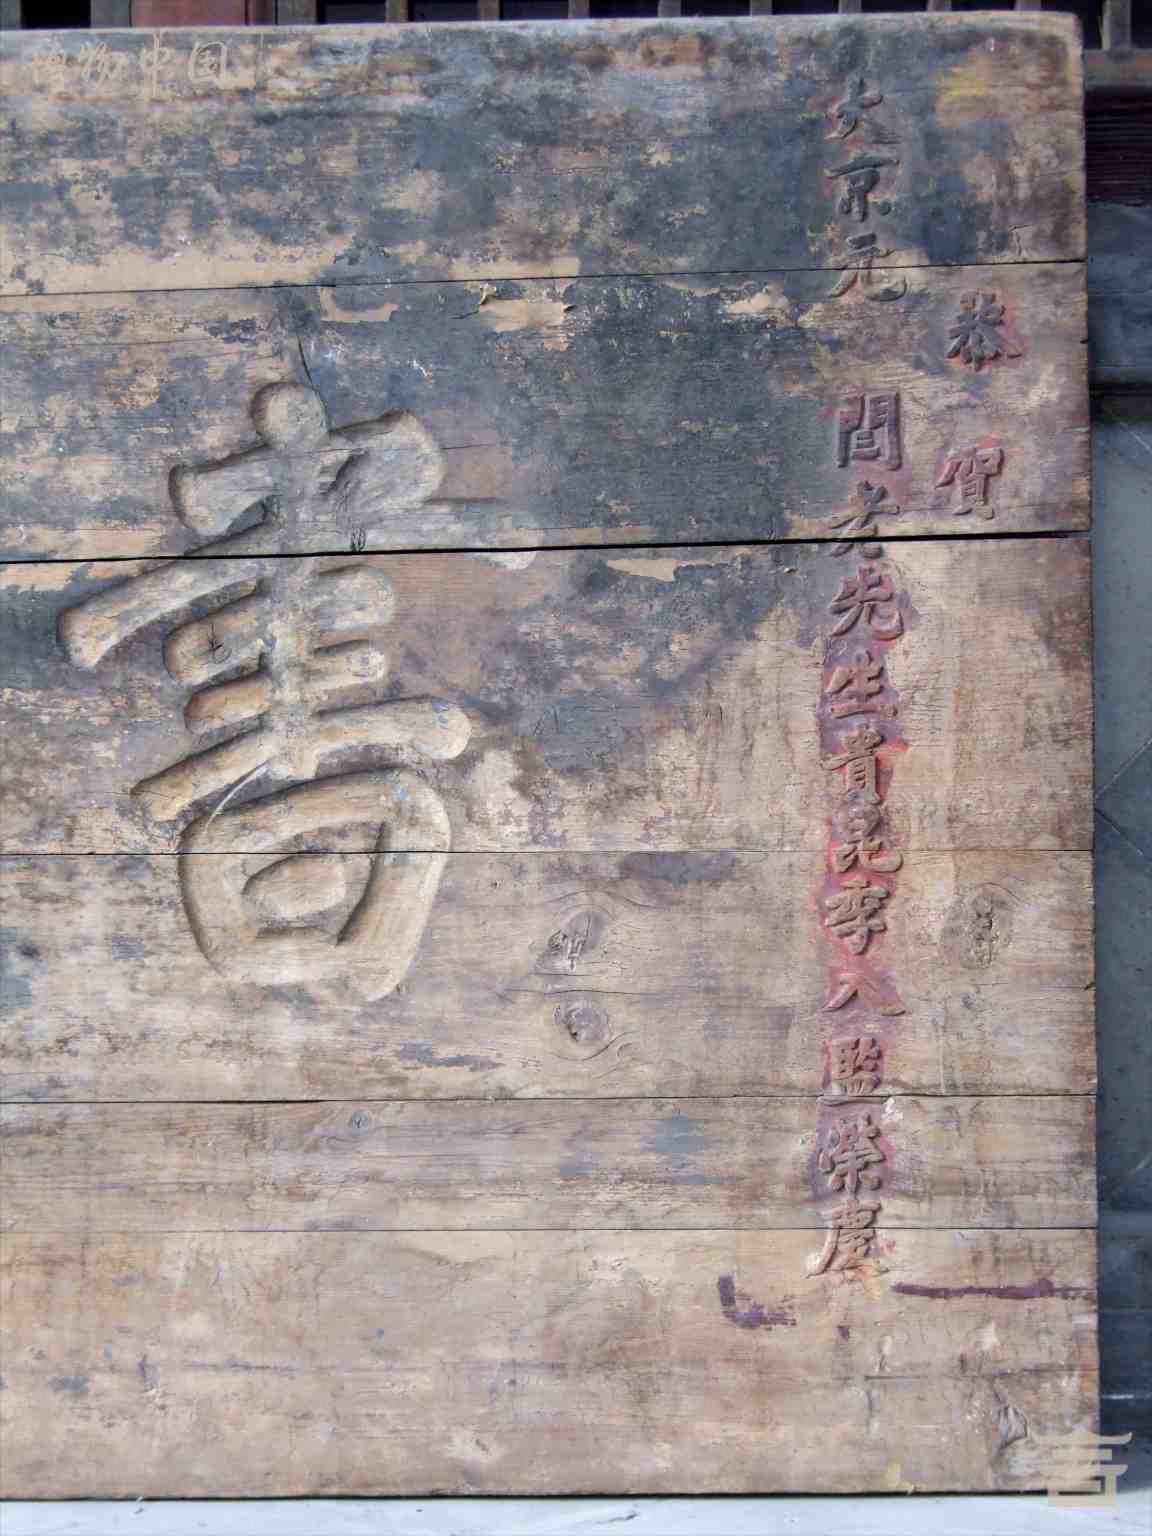 恭賀
大京元 閆老先生貴昆季入監榮慶
書
博物中国